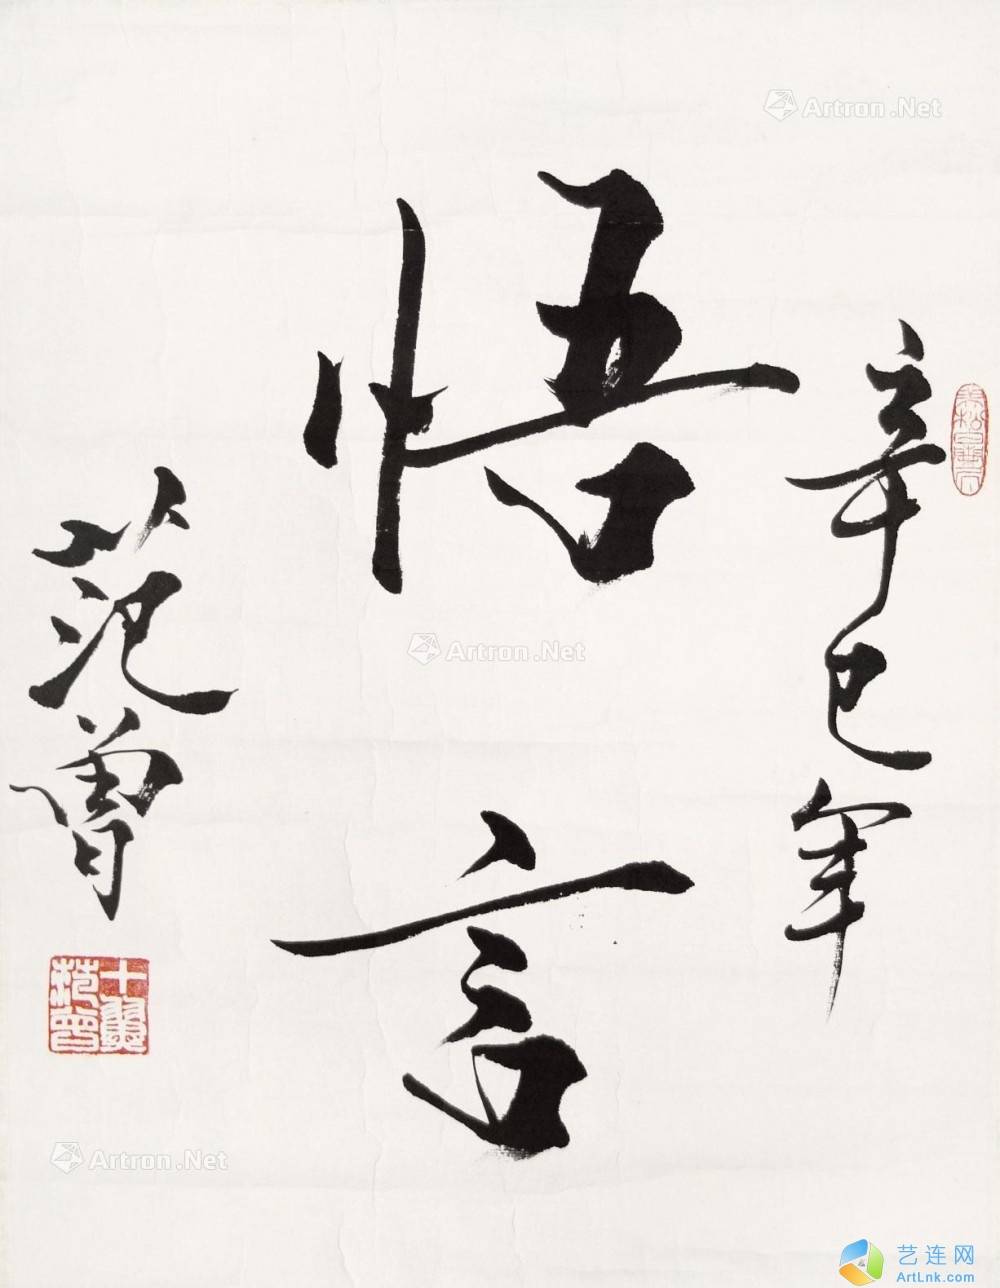 辛巳年
悟言
范曾
十翼范曾
Artron.Net
Artron.Net
Artron.Net
艺连网
ArtLnk.com